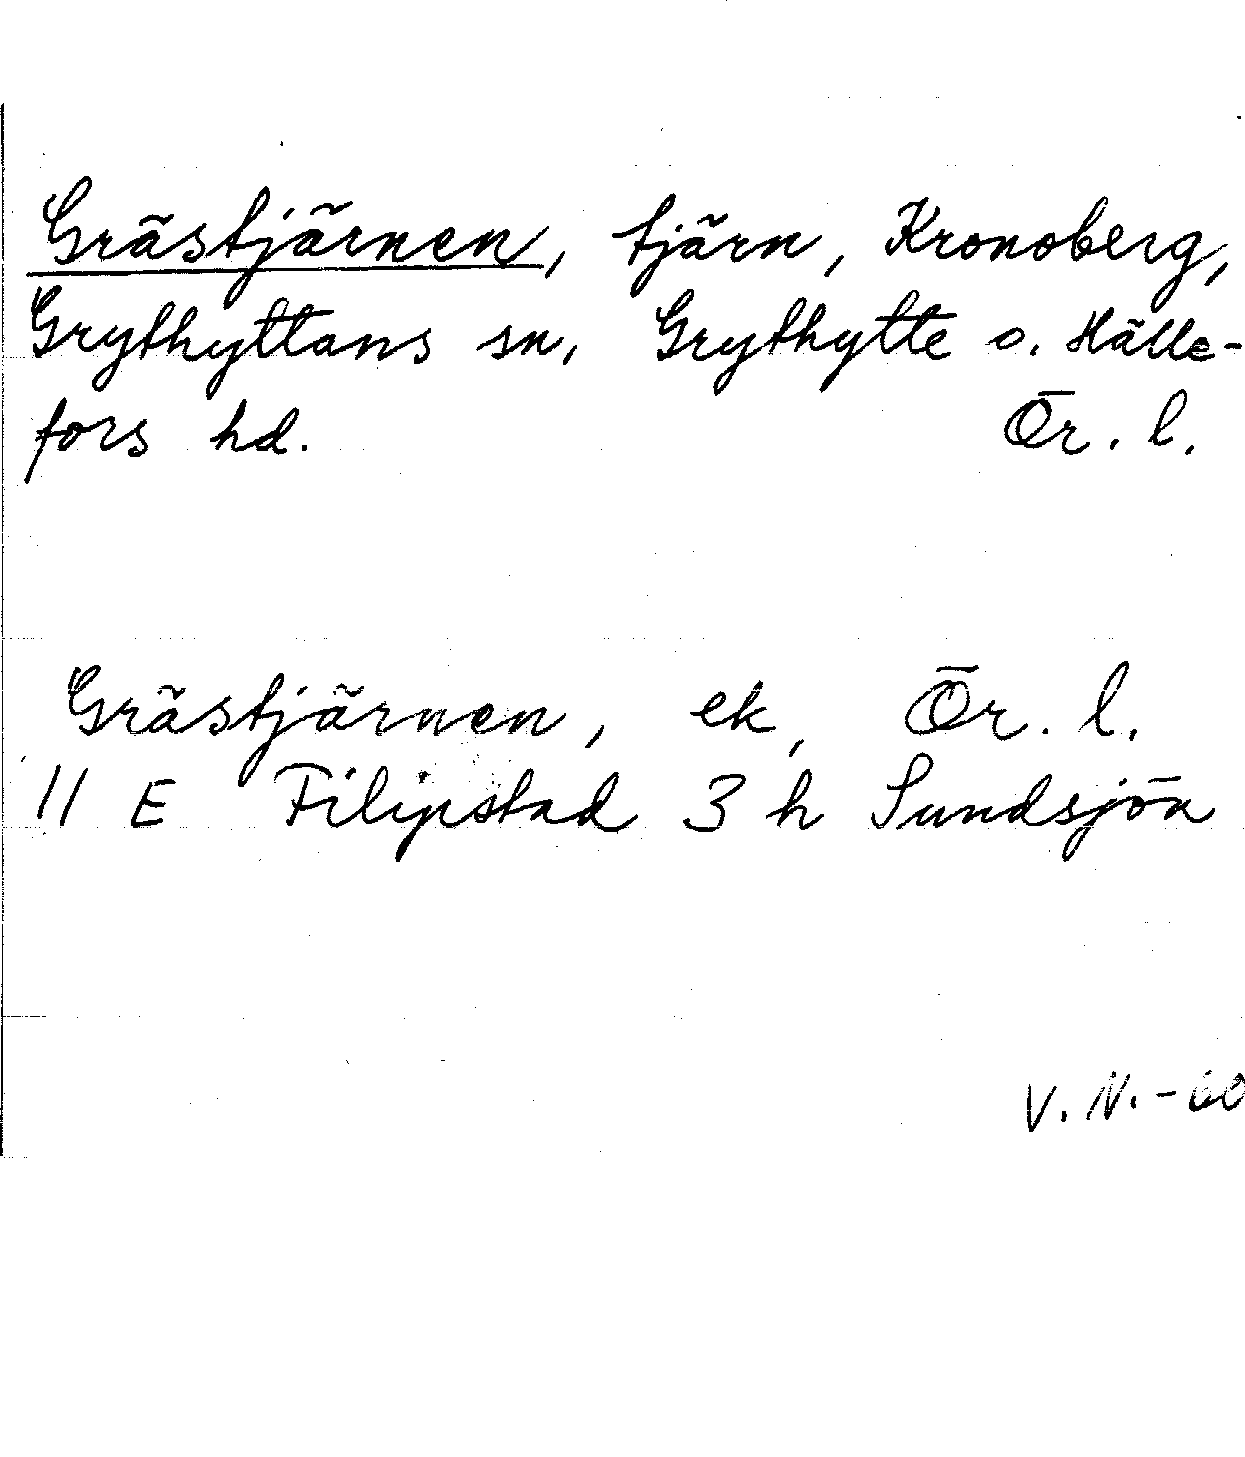 Grästjärnen, tjärn, Kronoberg,
Grythyttans sn, Grythytte o. Hälle-
fors hd. Ör. l.
Grästjärnen, ek, Ör. l.
11 E Filipstad 3 h Sundsjön
V. N. -60